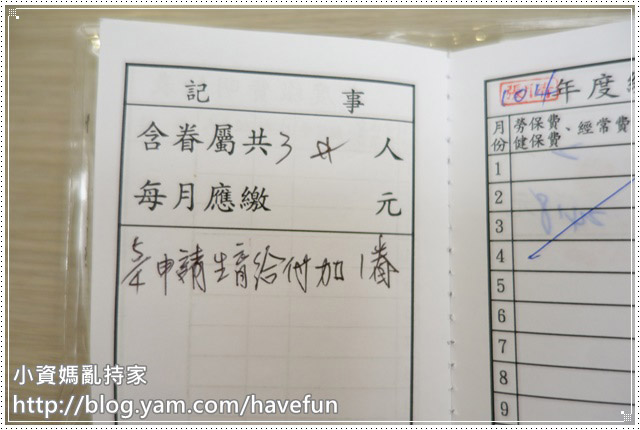 記事
含眷屬共3 4 人
每月應繳 元
5/4 申請生育給付加1眷
104年度
月份 勞保費、經常費 健保費
1
2
3
4
5
6
7
8
9
小資媽亂持家
http://blog.yam.com/havefun